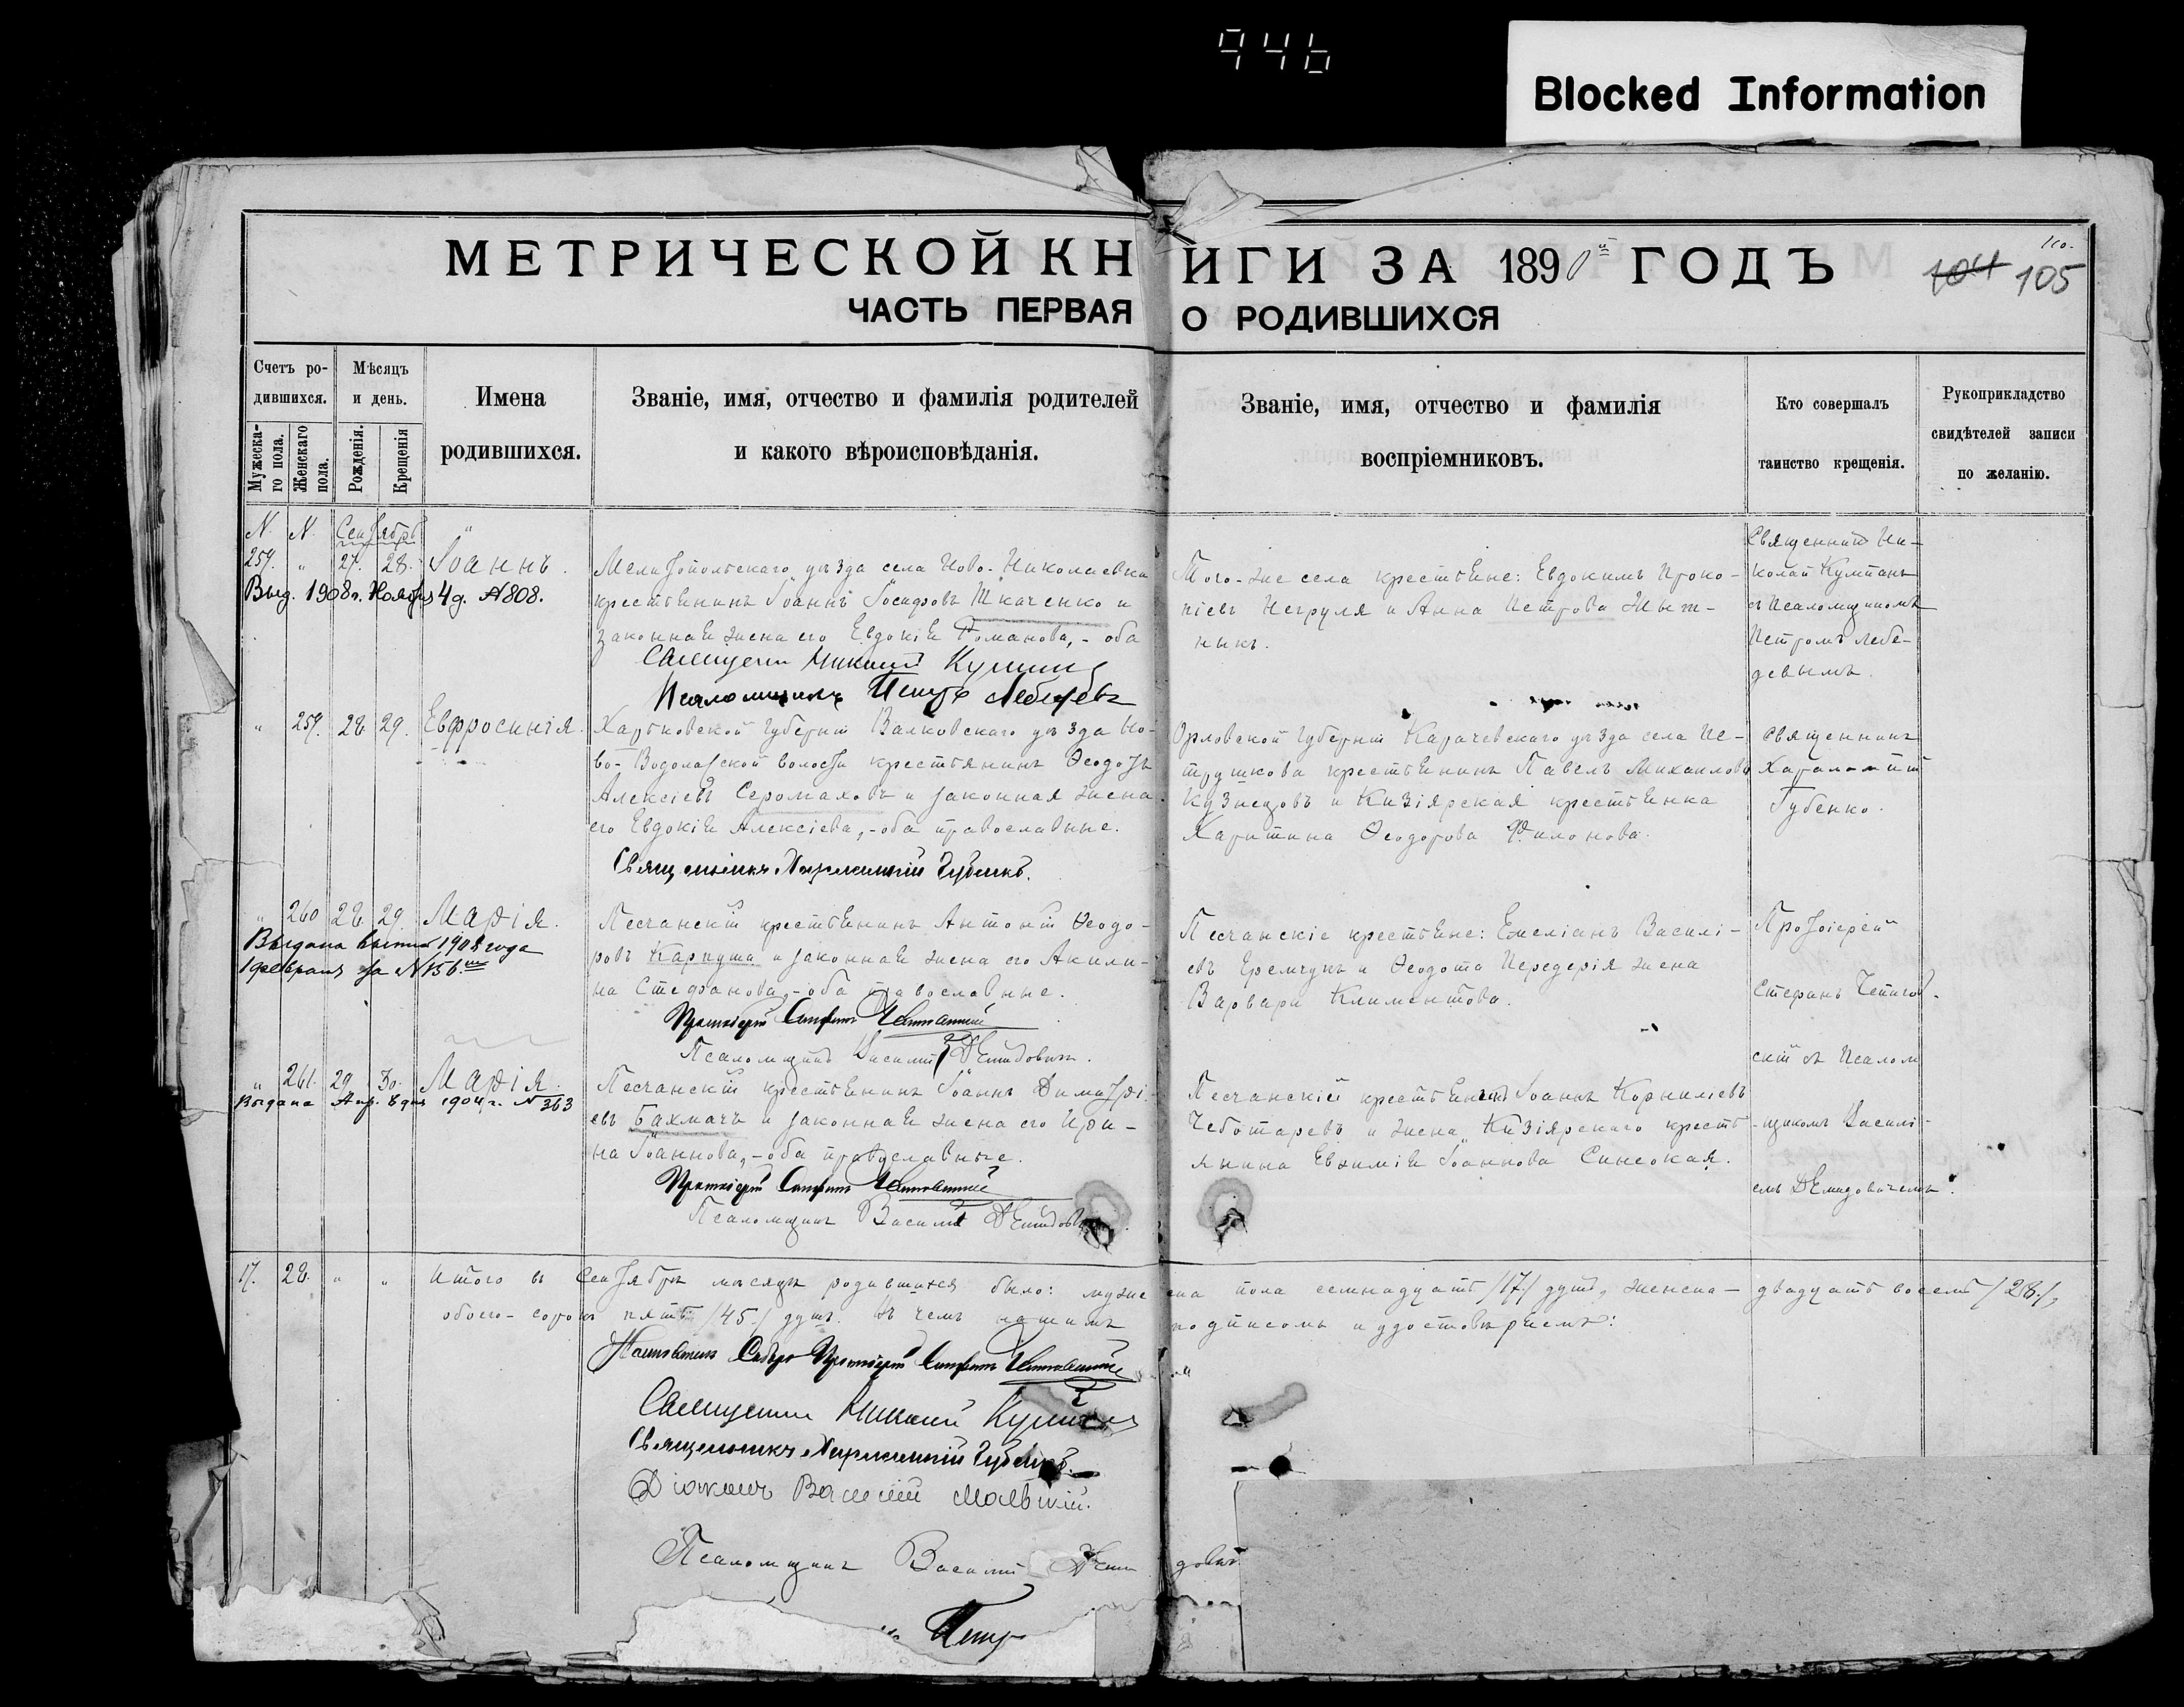 946
Blocked Information
МЕТРИЧЕСКОЙ КНИГИ ЗА 1890й ГОДЪ
110.
104 105
ЧАСТЬ ПЕРВАЯ О РОДИВШИХСЯ
Счетъ ро-
дившихся.
Мужеска-
го пола.
Женскаго
пола.
Мѣсяцъ
и день.
Рожденія.
Крещенія
Имена
родившихся.
Званіе, имя, отчество и фамилія родителей
и какого вѣроисповѣданія.
Званіе, имя, отчество и фамилія
воспріемниковъ.
Кто совершалъ
таинство крещенія.
Рукоприкладство
свидѣтелей записи
по желанію.
N. N. Сентябрь
257. " 27. 28. Іоаннъ.
Выд. 1908 г. Ноября 4 д. № 808.
Мелитопольскаго уѣзда села Ново-Николаевки
крестьянинъ Іоаннъ Іосифовъ Ткаченко и
законная жена его Евдокія Романова,- оба
Священникъ Николай
Псаломщикъ Петръ Лебедевъ
Того-же села крестьяне: Евдокимъ Проко-
піевъ Негруля и Анна Петрова Жит-
никъ.
Священникъ Ни-
колай
съ Псаломщикомъ
Петромъ Лебе-
девымъ.
" 259. 28. 29. Евфросинія.
Харьковской губерніи Валковскаго уѣзда Но-
во-Водолажской волости крестьянинъ
Алексіевъ и законная жена
его Евдокія Алексіева,-оба православные.
Священникъ Харалампій Губенко.
Орловской губерніи Карачевскаго уѣзда села Пе-
трушкова крестьянинъ Павелъ Михаиловъ
Кузнецовъ и Кизіярская крестьянка
Харитина Ѳеодорова Филонова.
Священникъ
Харалампій
Губенко.
" 260 28. 29. Марія.
Выдана выпись 1908 года
1 февраля за № 156.
Песчанскій крестьянинъ Антоній Ѳеодо-
ровъ Карпуша и законная жена его Акили-
на Стефанова,-оба православные.
Протоіерей Стефанъ
Псаломщикъ Василій Демидовичъ.
Песчанскіе крестьяне: Емеліанъ Василі-
евъ Еремчукъ и Ѳеодота Передерія жена
Варвара Климентова.
Протоіерей
Стефанъ
скій съ Псалом
" 261. 29. 30. Марія.
Выдана Апр. 8 дня 1904 г. № 363
Песчанскій крестьянинъ Іоаннъ Димитрі-
евъ Бахмачъ и законная жена его Ири-
на Іоаннова,-оба православные.
Протоіерей Стефанъ
Псаломщикъ Василій Демидовичъ.
Песчанскій крестьянинъ Іоаннъ Корниліевъ
Чеботаревъ и жена Кизіярскаго кресть-
янина Евѳимія Іоаннова Синеокая.
-щикомъ Василі-
емъ Демидовичемъ.
17. 28. " " Итого въ Сентябрѣ мѣсяцѣ родившихся было: мужеска пола семнадцать /17/ душъ, женска- двадцать восемь /28./,
обоего-сорокъ пять /45./ душъ. Въ чемъ нашимъ подписомъ и удостовѣряемъ:
Протоіерей Стефанъ
Священникъ Николай
Священникъ Харалампій Губенко.
Діаконъ Василій
Псаломщикъ Василій Демидовичъ
Петр